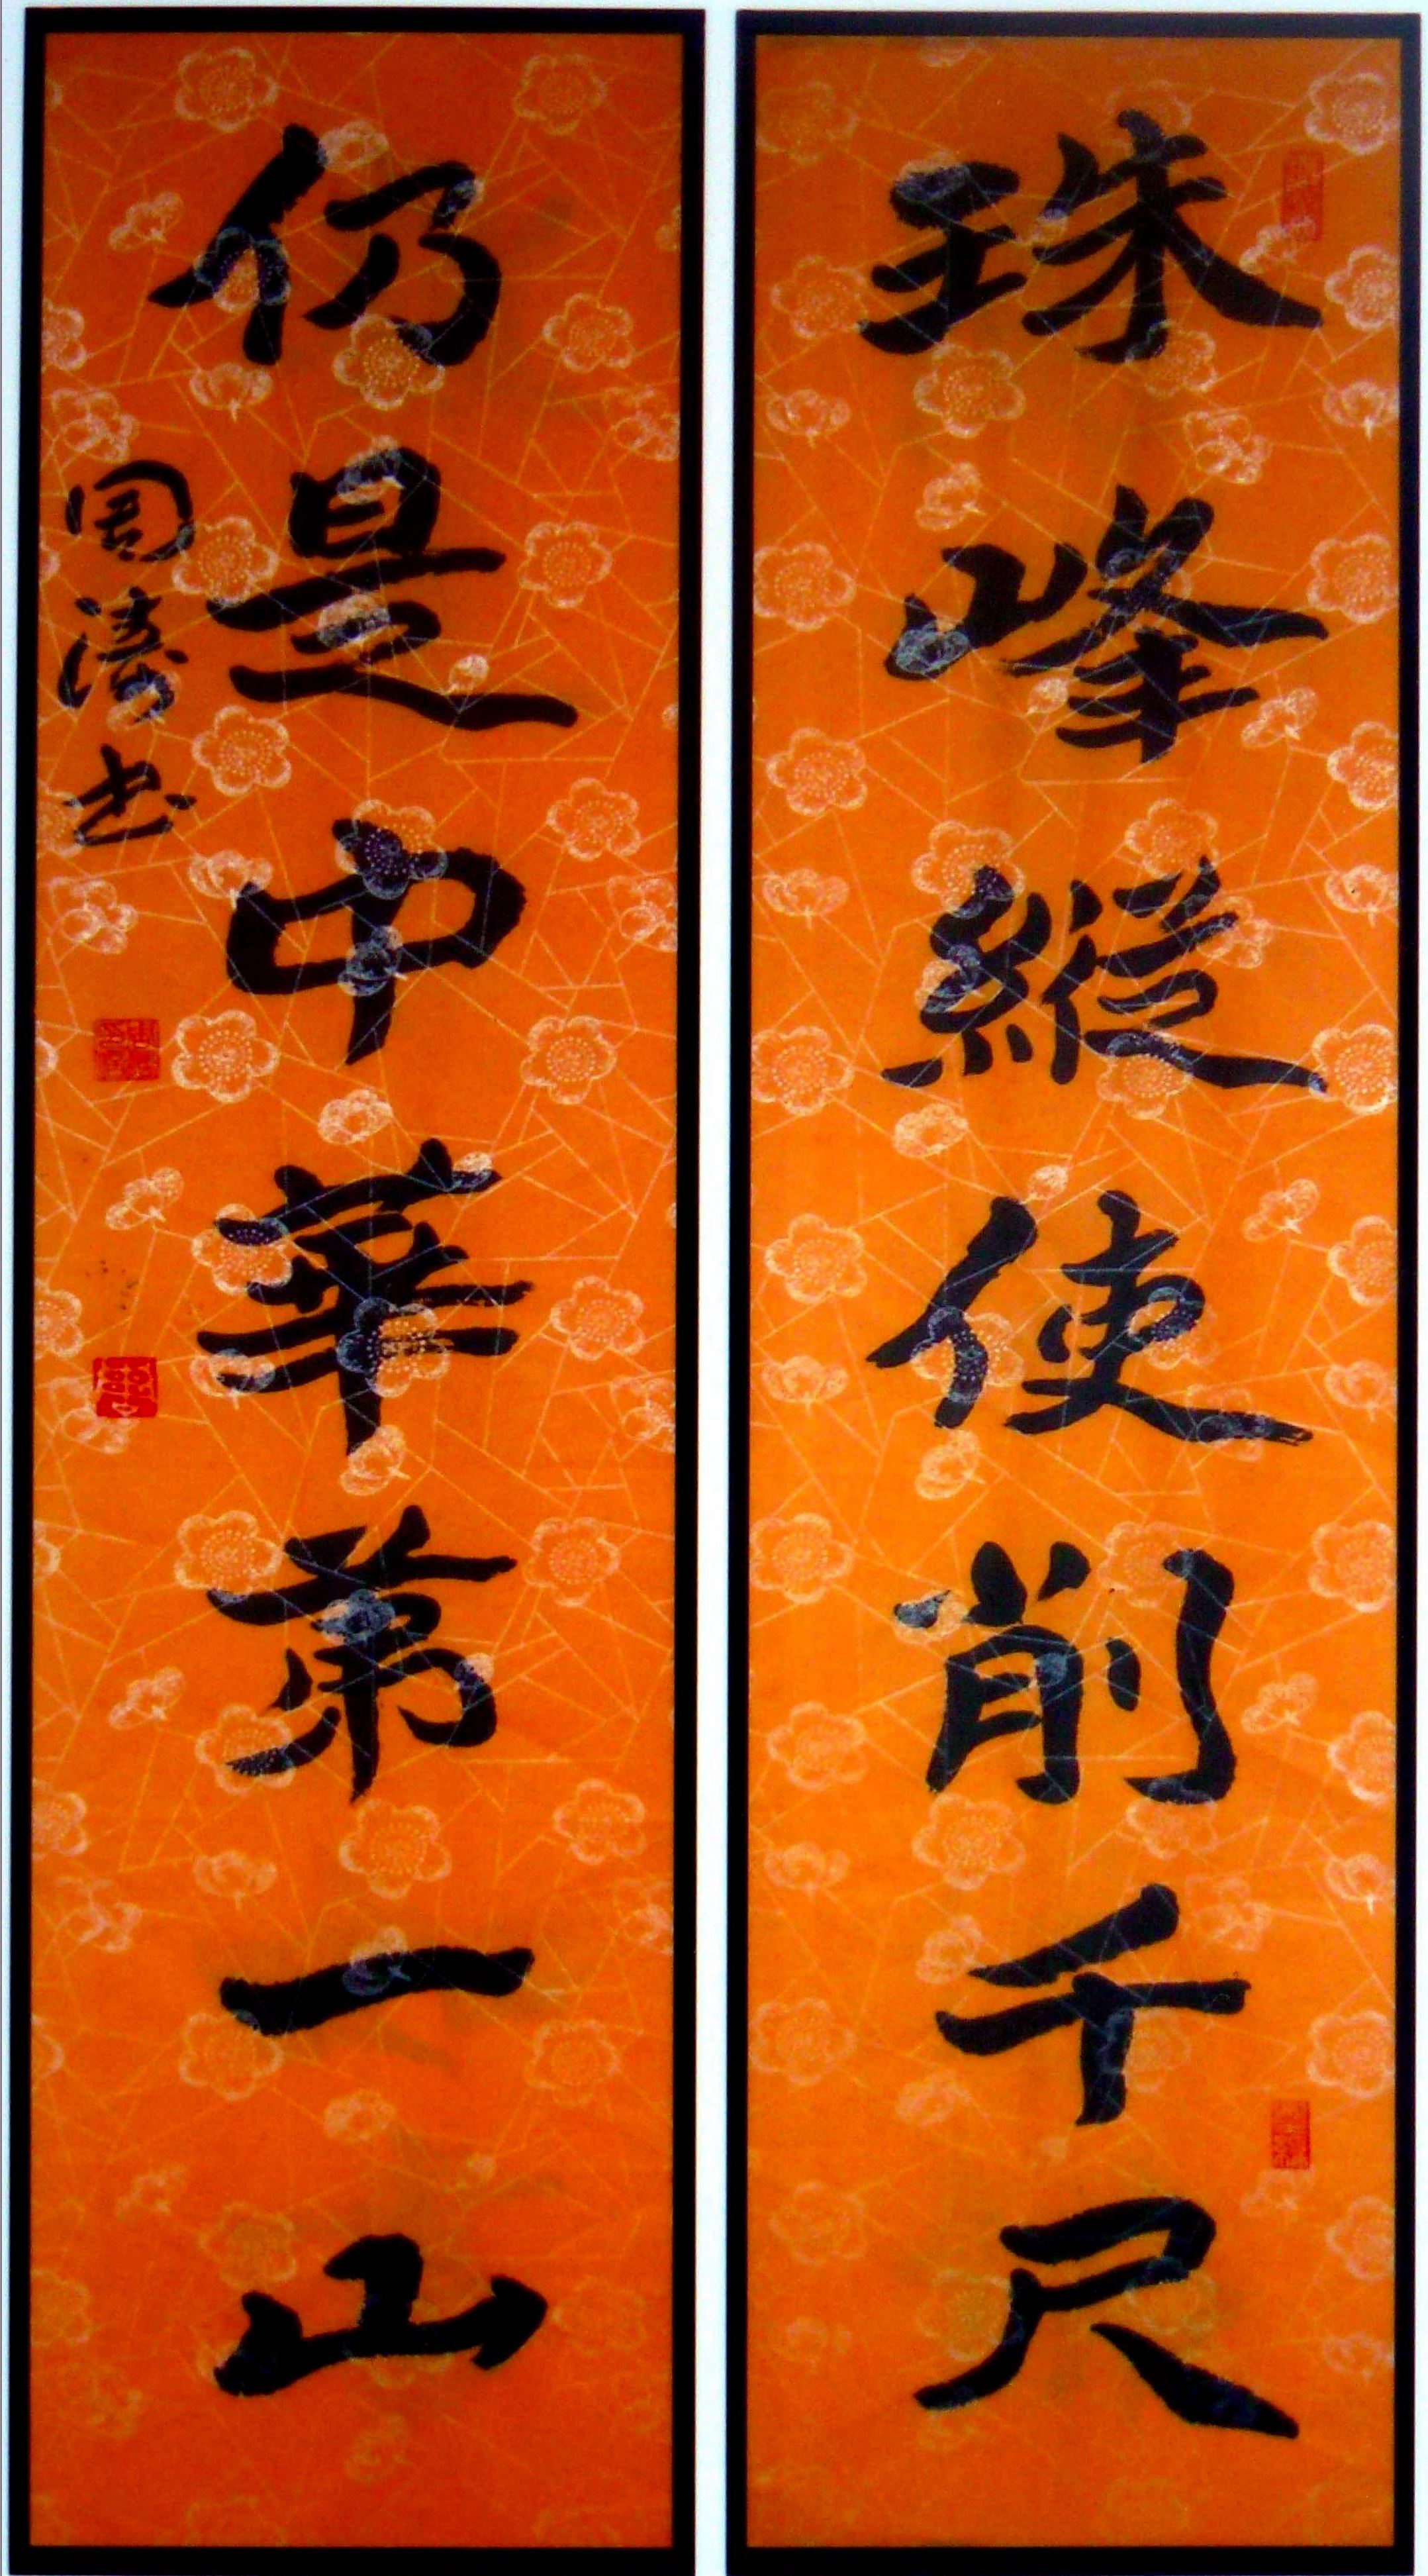 珠峰縱使削千尺
仍是中華第一山
国濤书